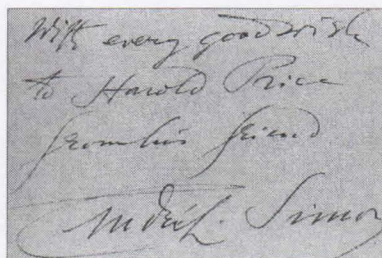 With every good wish
to Harold Price
from his friend
André L. Simon